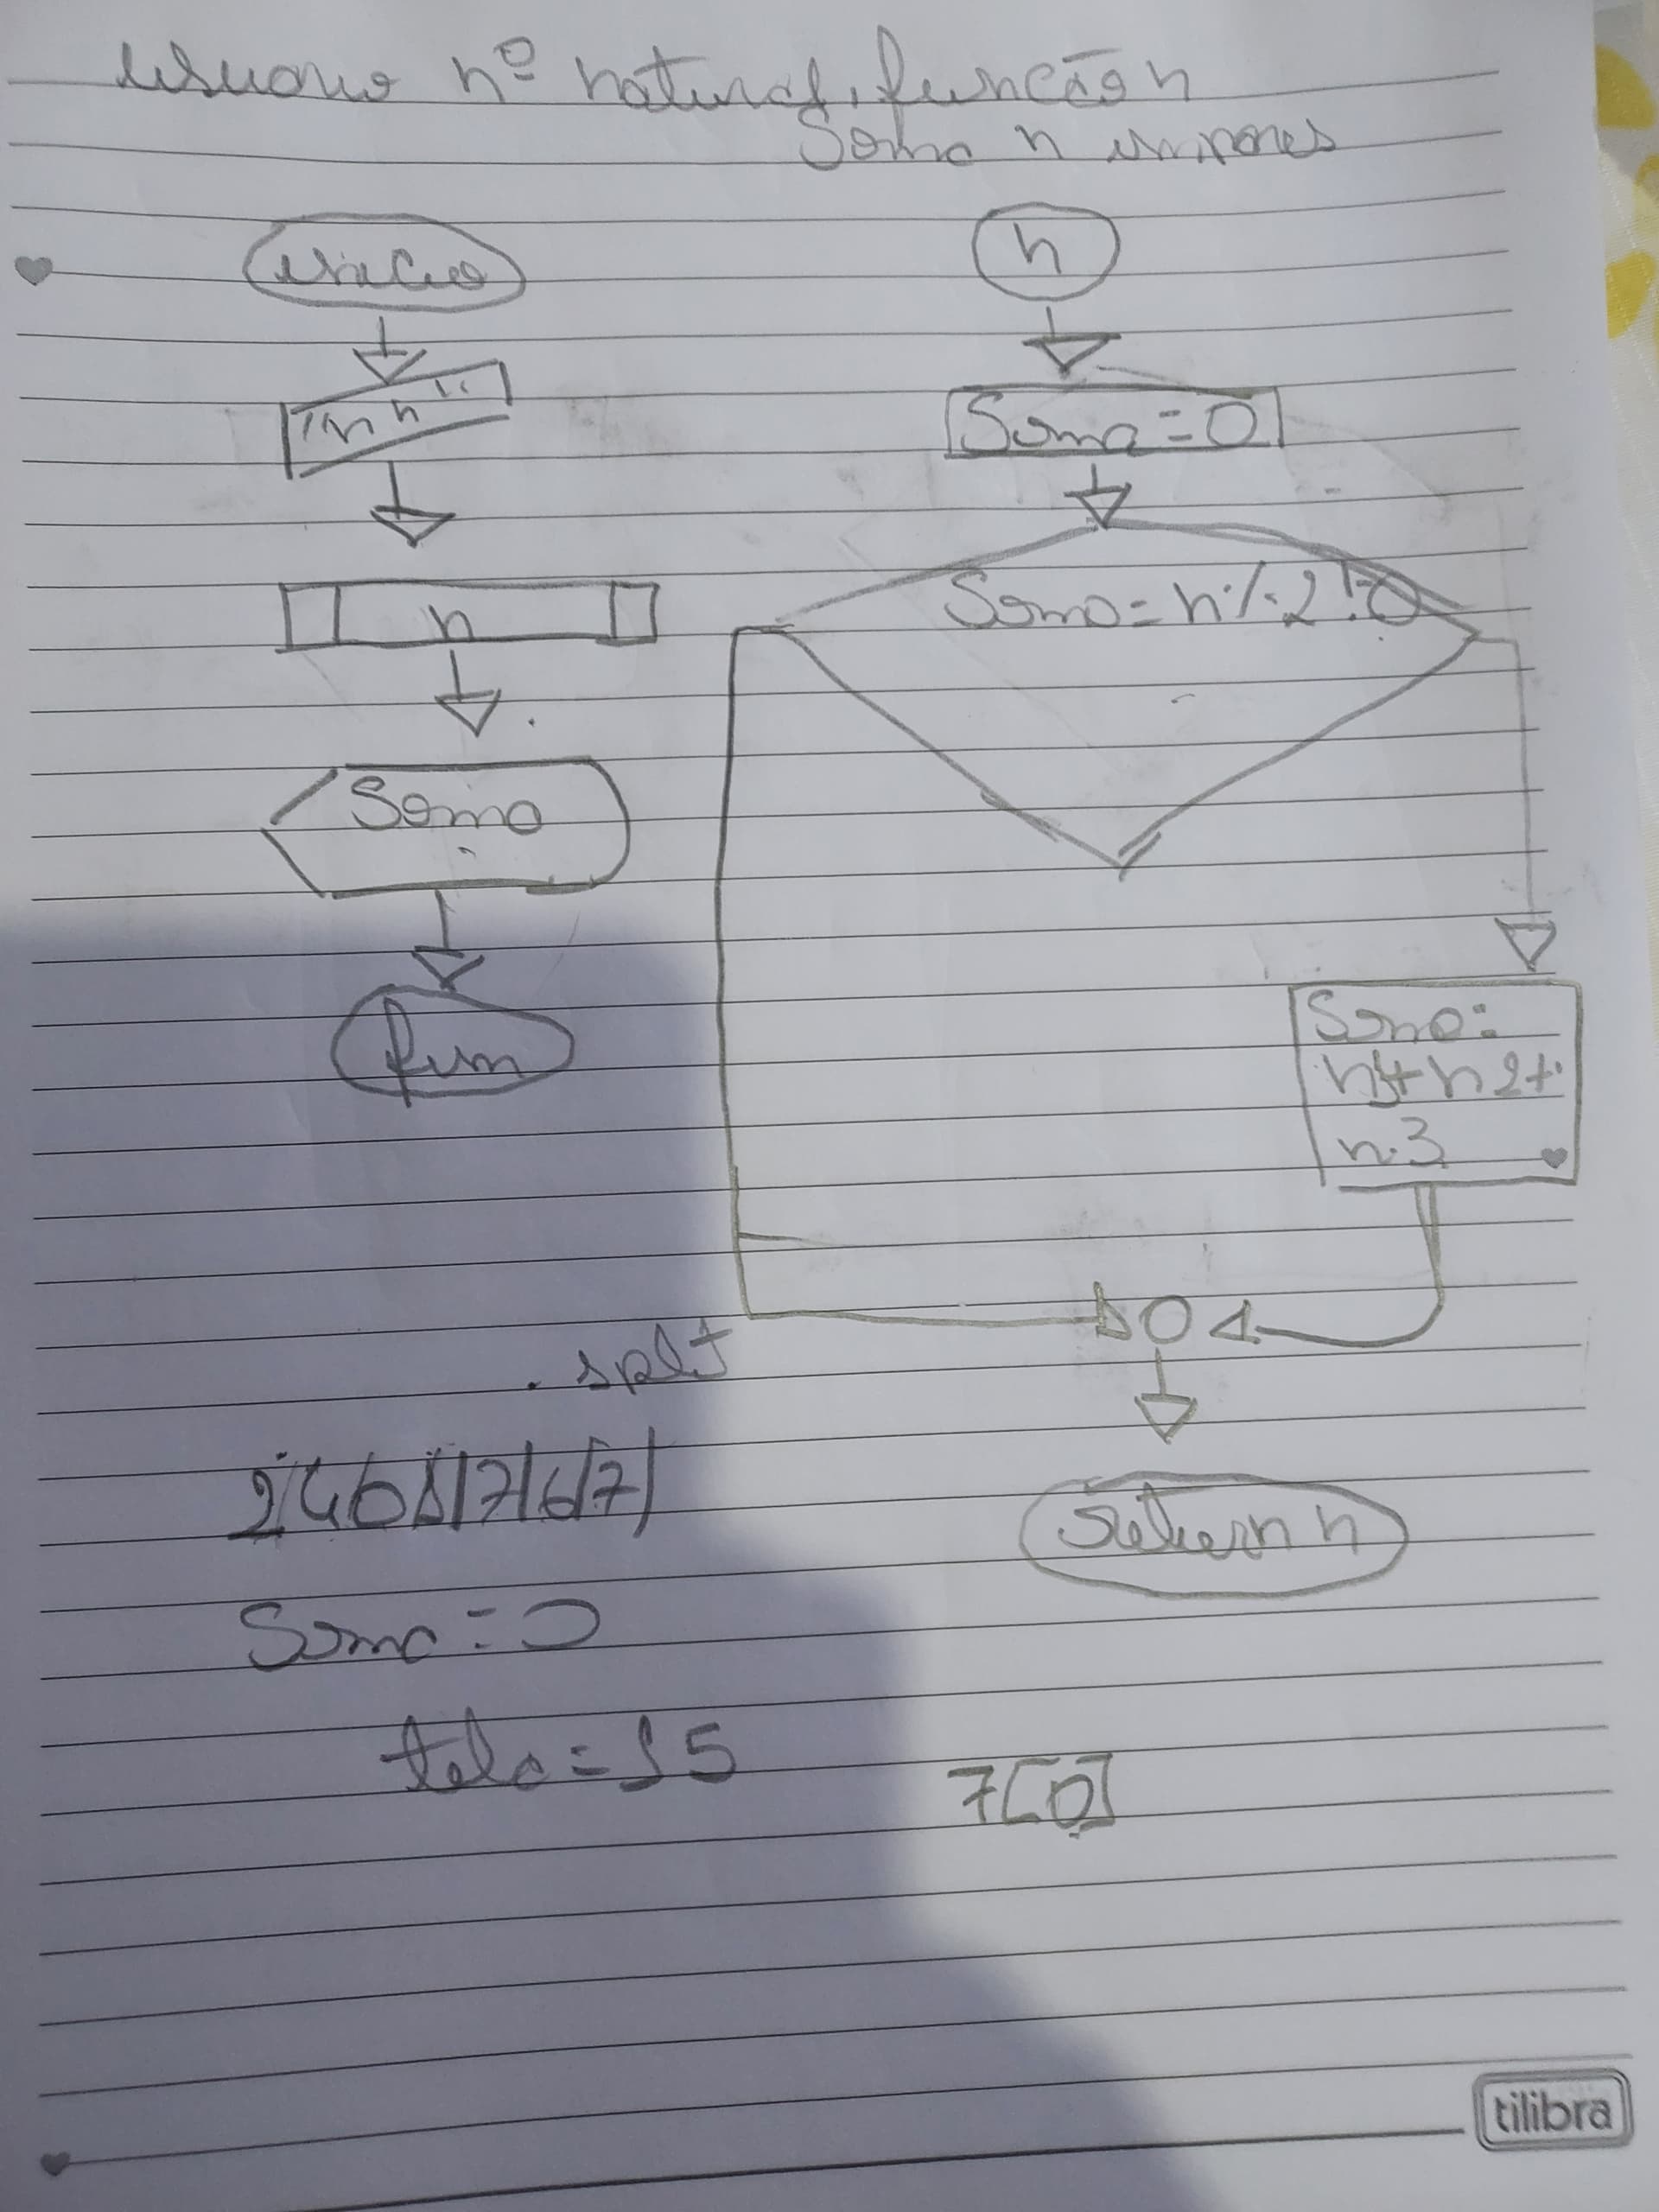 usuario nº natural, função n
Soma n impares
inicio
"n n"
n
Soma
fim
n
Soma = 0
Soma = n % 2 != 0
Soma =
n1 + n2 +
n.3
return n
. split
Soma = 0
tela = 15
7[0]
tilibra